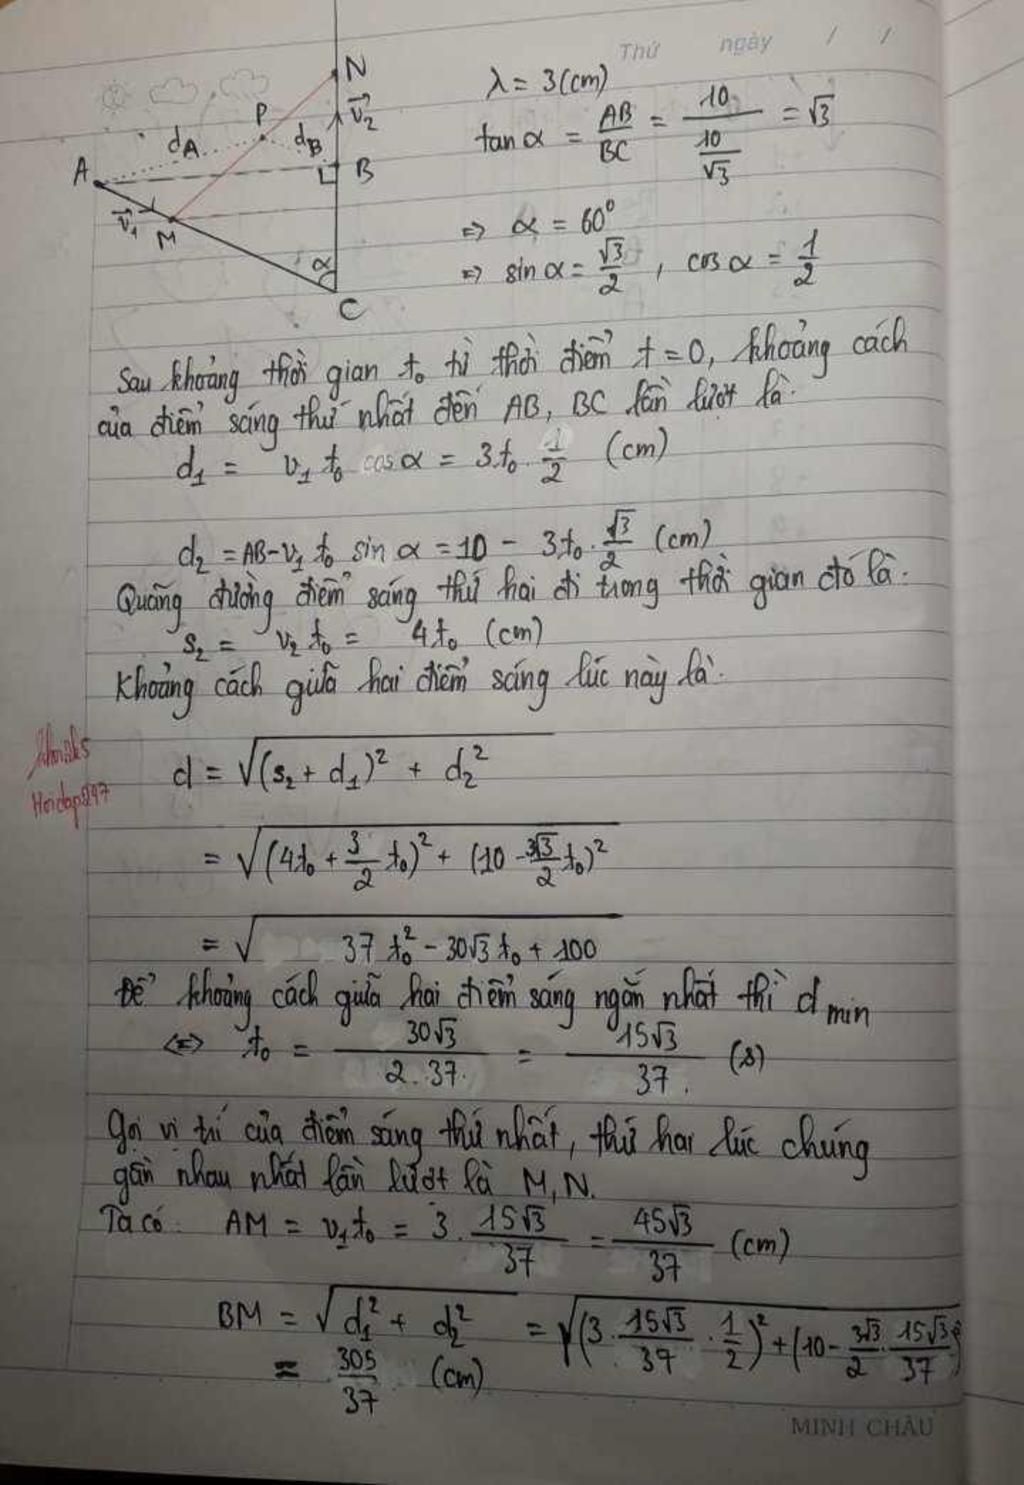 Thứ ngày / /
N
P
v₂
d_A
d_B
A
B
v₁
M
α
C
λ = 3(cm)
tan α = AB/BC = 10/(10/√3) = √3
⇒ α = 60°
⇒ sin α = √3/2 , cos α = 1/2
Sau khoảng thời gian t₀ từ thời điểm t = 0, khoảng cách
của điểm sáng thứ nhất đến AB, BC lần lượt là:
d₁ = v₁ t₀ cos α = 3t₀ . 1/2 (cm)
d₂ = AB - v₁ t₀ sin α = 10 - 3t₀ . √3/2 (cm)
Quãng đường điểm sáng thứ hai đi trong thời gian đó là:
s₂ = v₂ t₀ = 4t₀ (cm)
Khoảng cách giữa hai điểm sáng lúc này là:
d = √((s₂ + d₁)² + d₂²)
Hoidap247
= √((4t₀ + 3/2 t₀)² + (10 - 3√3/2 t₀)²)
= √(37 t₀² - 30√3 t₀ + 100)
Để khoảng cách giữa hai điểm sáng ngắn nhất thì d min
⇔ t₀ = 30√3/(2.37) = 15√3/37 (s)
Gọi vị trí của điểm sáng thứ nhất, thứ hai lúc chúng
gần nhau nhất lần lượt là M, N.
Ta có: AM = v₁t₀ = 3 . 15√3/37 = 45√3/37 (cm)
BM = √(d₁² + d₂²) = √((3 . 15√3/37 . 1/2)² + (10 - 3√3/2 . 15√3/37)²)
= 305/37 (cm)
MINH CHÂU